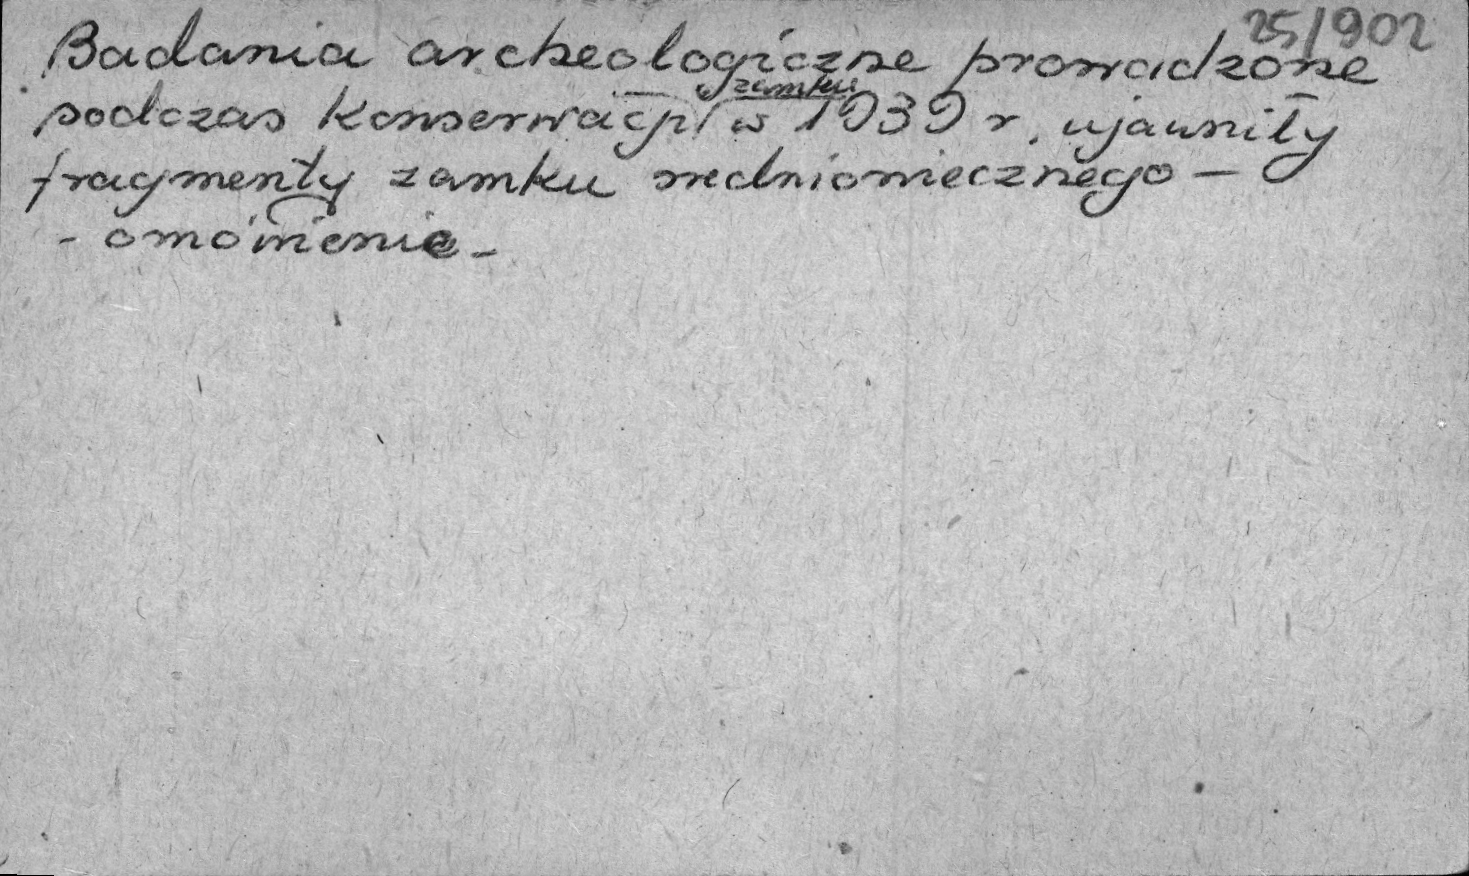 25/902
Badania archeologiczne prowadzone
zamku
podczas konserwacji w 1939 r. ujawniły
fragmenty zamku średniowiecznego –
- omówienie -